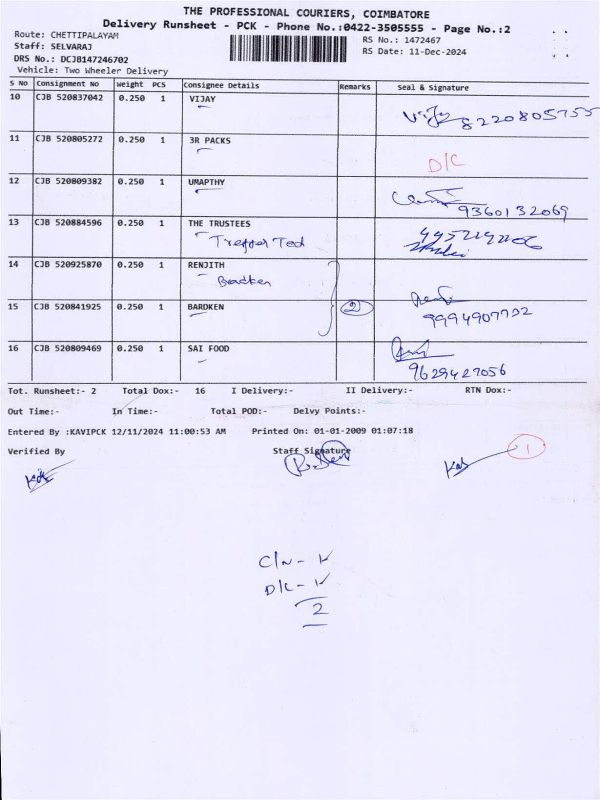 THE PROFESSIONAL COURIERS, COIMBATORE
Delivery Runsheet - PCK - Phone No.:0422-3505555 - Page No.:2
Route: CHETTIPALAYAM
RS No.: 1472467
Staff: SELVARAJ
RS Date: 11-Dec-2024
DRS No.: DCJB147246702
Vehicle: Two Wheeler Delivery
S No Consignment No Weight PCS Consignee Details Remarks Seal & Signature
10 CJB 520837042 0.250 1 VIJAY
Vijay 8220805755
11 CJB 520805272 0.250 1 3R PACKS
D/C
12 CJB 520809382 0.250 1 UMAPTHY
9360132069
13 CJB 520884596 0.250 1 THE TRUSTEES
14 CJB 520925870 0.250 1 RENJITH
Bradken
15 CJB 520841925 0.250 1 BARDKEN 2
9994907732
16 CJB 520809469 0.250 1 SAI FOOD
9629427056
Tot. Runsheet:- 2 Total Dox:- 16 I Delivery:- II Delivery:- RTN Dox:-
Out Time:- In Time:- Total POD:- Delvy Points:-
Entered By :KAVIPCK 12/11/2024 11:00:53 AM Printed On: 01-01-2009 01:07:18
Verified By Staff Signature
1
C/N -
D/C -
2